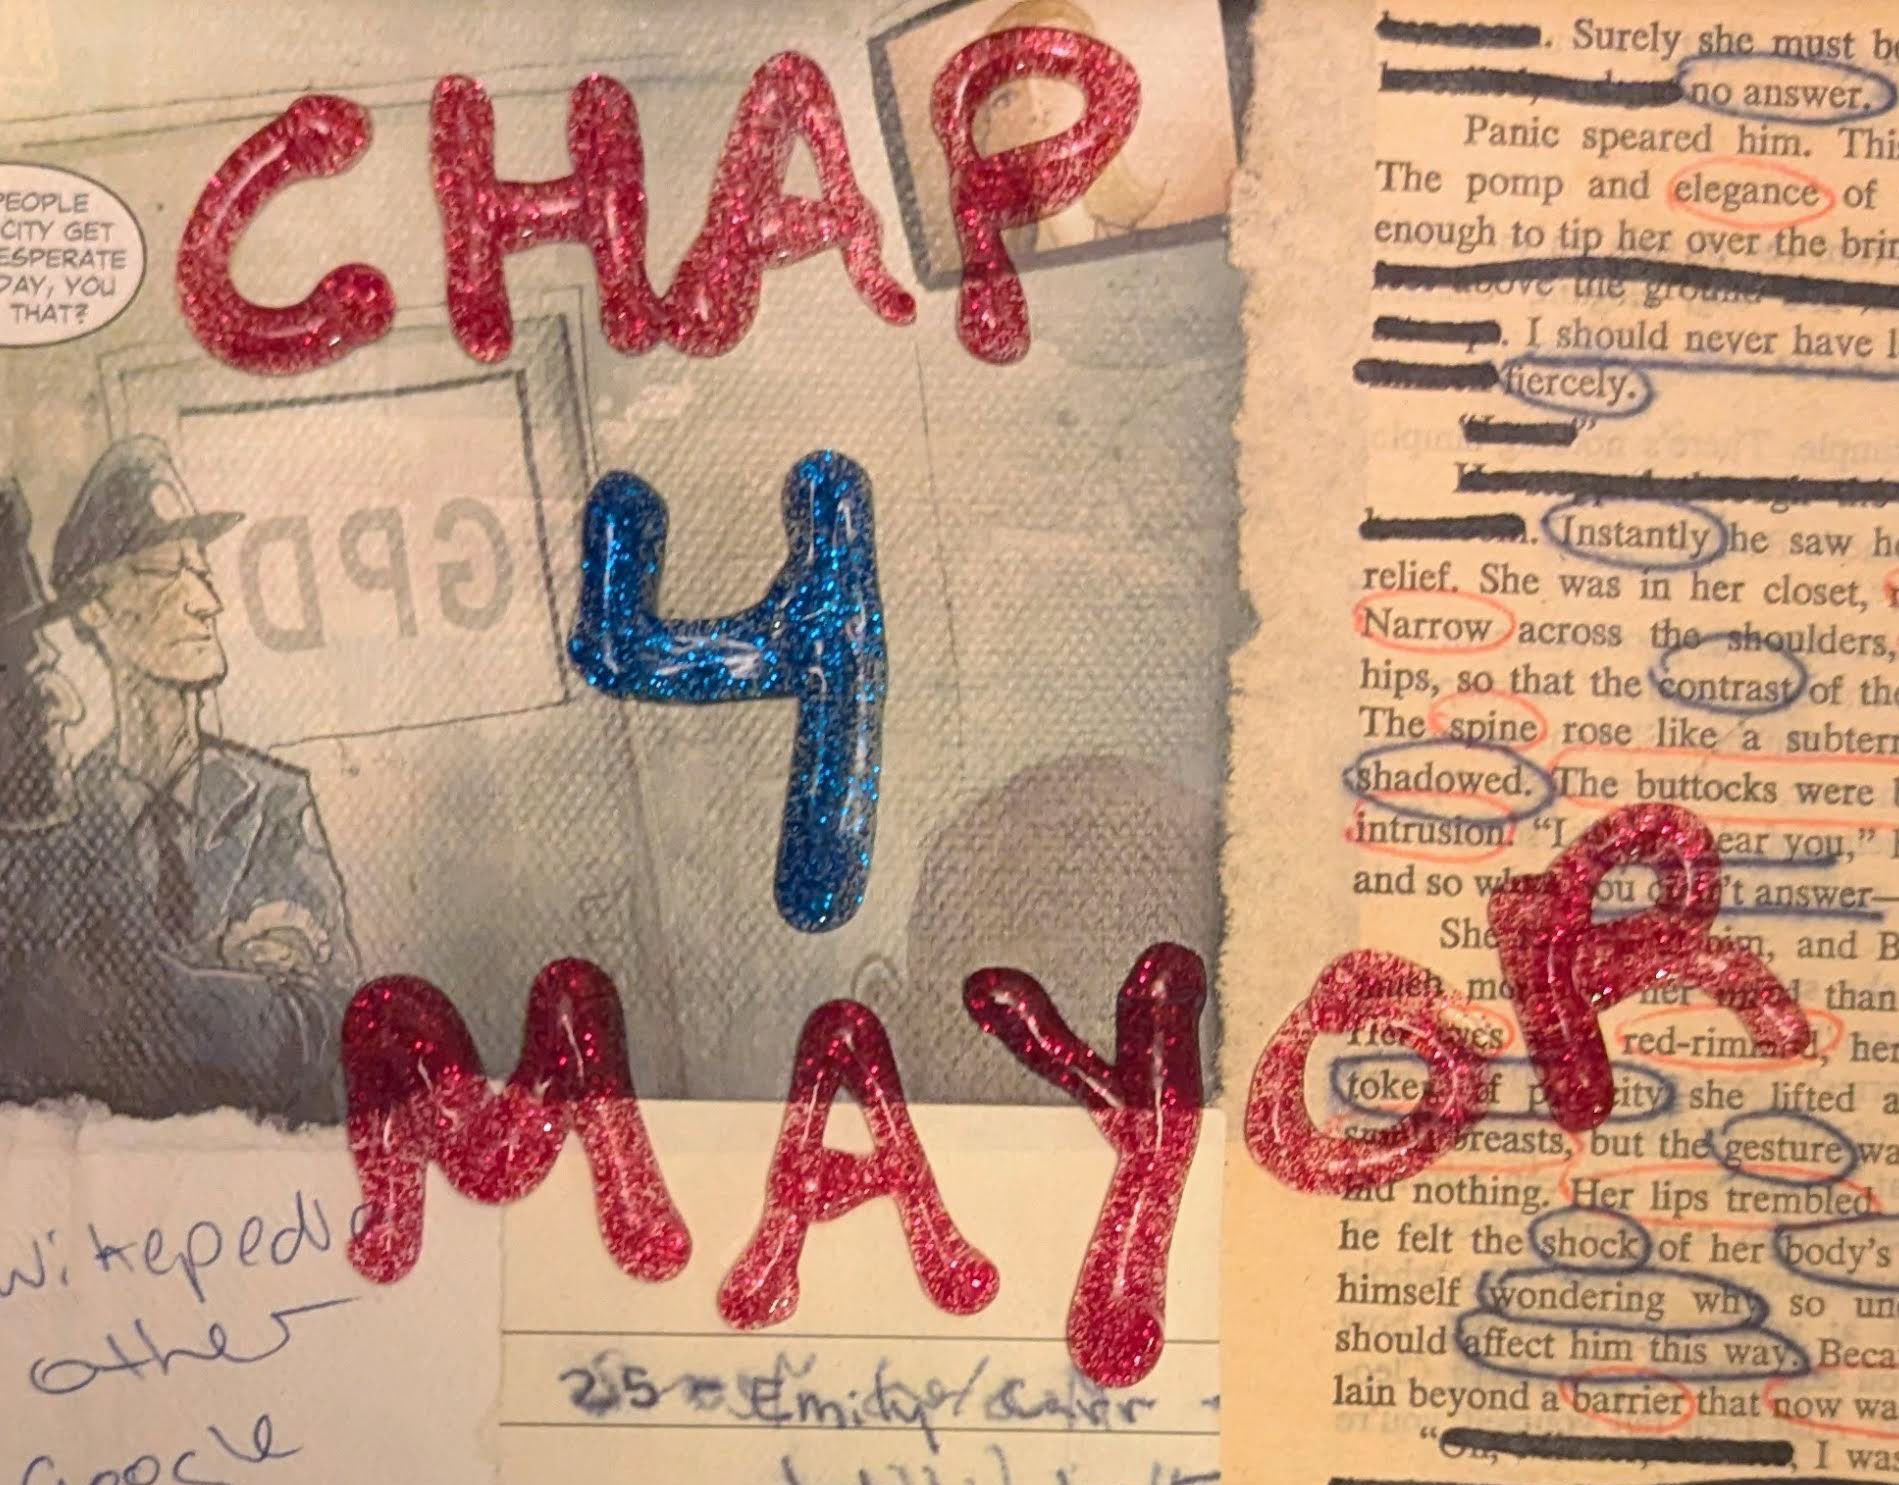 CHAP
4
MAYOR
PEOPLE
CITY GET
ESPERATE
DAY, YOU
THAT?
GPD
Wikepedia
other
Google
25 - Emily Carr -
. Surely she must be
no answer.
Panic speared him. This
The pomp and elegance of
enough to tip her over the brin
above the ground
. I should never have l
fiercely.
“ ”
. Instantly he saw he
relief. She was in her closet,
Narrow across the shoulders,
hips, so that the contrast of th
The spine rose like a subterr
shadowed. The buttocks were
intrusion. “I ear you,”
and so wh ou d 't answer—
She him, and B
much mo her mind than
Her eyes red-rimmed, her
token of p city she lifted a
small breasts, but the gesture wa
nothing. Her lips trembled
he felt the shock of her body's
himself wondering why so un
should affect him this way. Beca
lain beyond a barrier that now wa
“Oh, , I was